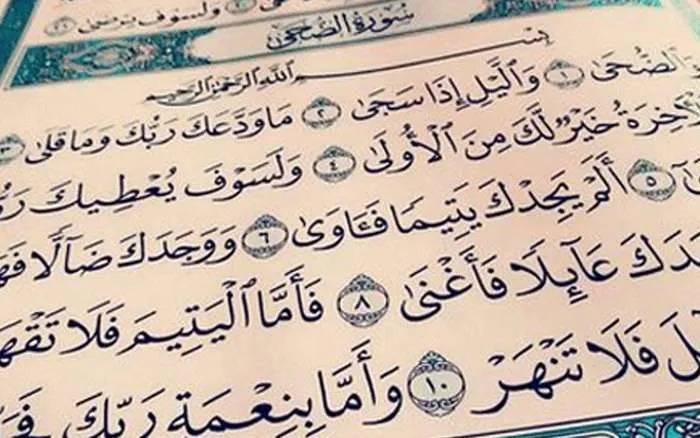 وَلَسَوْفَ يَرْضَىٰ ٢١
سُورَةُ الضُّحَىٰ
بِسْمِ ٱللَّهِ ٱلرَّحْمَٰنِ ٱلرَّحِيمِ
ٱلضُّحَىٰ ١ وَٱلَّيْلِ إِذَا سَجَىٰ ٢ مَا وَدَّعَكَ رَبُّكَ وَمَا قَلَىٰ ٣
خِرَةُ خَيْرٌ لَّكَ مِنَ ٱلْأُولَىٰ ٤ وَلَسَوْفَ يُعْطِيكَ رَبُّ
ٰٓ ٥ أَلَمْ يَجِدْكَ يَتِيمًا فَـَٔاوَىٰ ٦ وَوَجَدَكَ ضَآلًّا فَهَ
جَدَكَ عَآئِلًا فَأَغْنَىٰ ٨ فَأَمَّا ٱلْيَتِيمَ فَلَا تَقْهَ
ئِلَ فَلَا تَنْهَرْ ١٠ وَأَمَّا بِنِعْمَةِ رَبِّكَ فَحَ